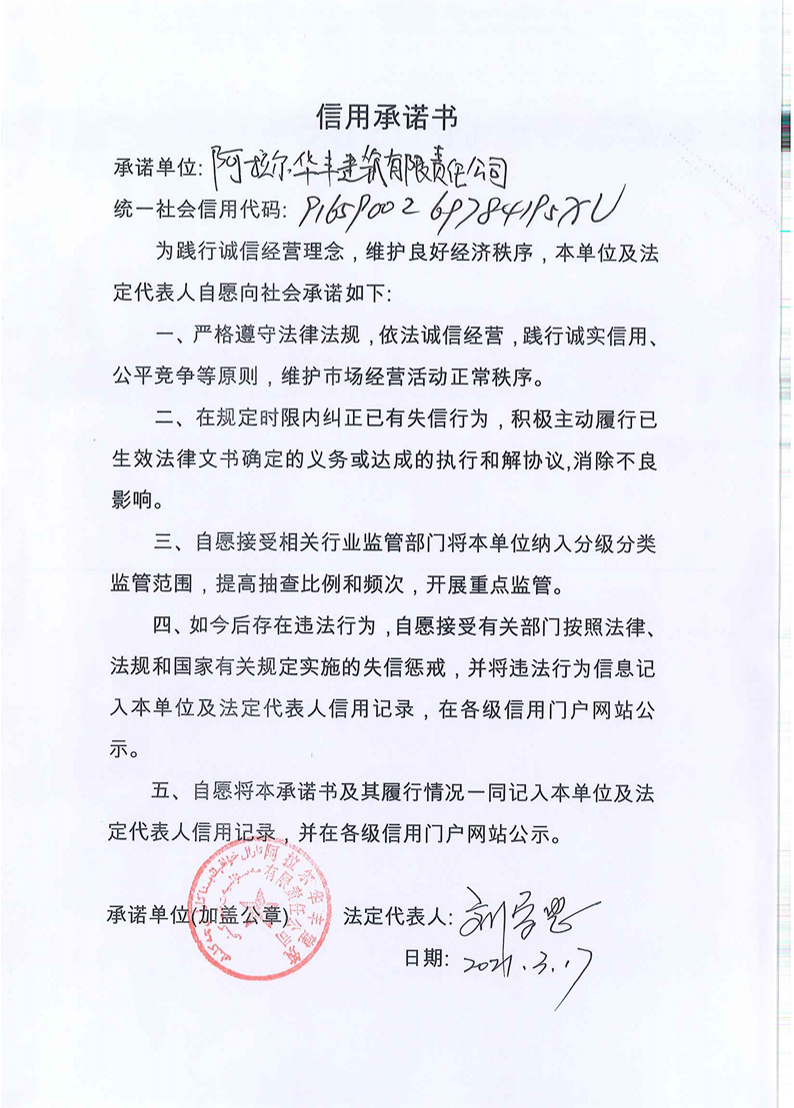 信用承诺书
承诺单位: 阿拉尔华丰建筑有限责任公司
统一社会信用代码: 91659002697841195XU
为践行诚信经营理念，维护良好经济秩序，本单位及法
定代表人自愿向社会承诺如下:
一、严格遵守法律法规，依法诚信经营，践行诚实信用、
公平竞争等原则，维护市场经营活动正常秩序。
二、在规定时限内纠正已有失信行为，积极主动履行已
生效法律文书确定的义务或达成的执行和解协议,消除不良
影响。
三、自愿接受相关行业监管部门将本单位纳入分级分类
监管范围，提高抽查比例和频次，开展重点监管。
四、如今后存在违法行为，自愿接受有关部门按照法律、
法规和国家有关规定实施的失信惩戒，并将违法行为信息记
入本单位及法定代表人信用记录，在各级信用门户网站公
示。
五、自愿将本承诺书及其履行情况一同记入本单位及法
定代表人信用记录，并在各级信用门户网站公示。
阿拉尔华丰建筑
有限责任公司
承诺单位(加盖公章) 法定代表人:
日期: 2021.3.17